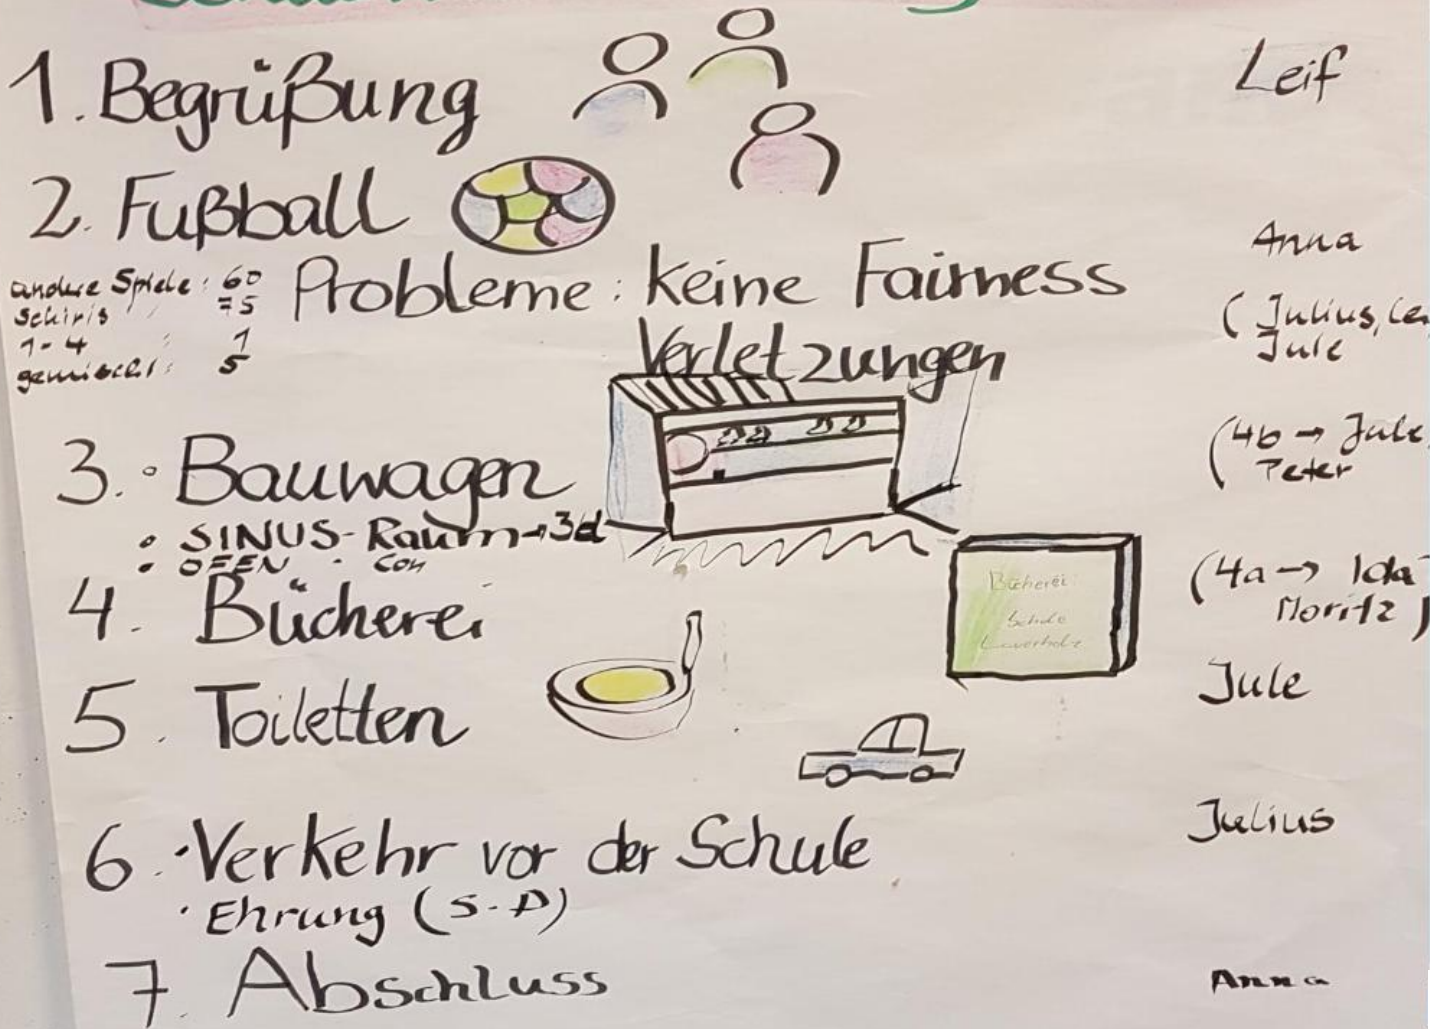 1. Begrüßung
Leif
2. Fußball
Anna
andere Spiele: 60
Schiris " 75
1-4 " 1
gemischt: 5
Probleme: keine Fairness
Verletzungen
(Julius,
Jule
3. • Bauwagen
(4b → Jule
Peter
• SINUS-Raum→3d
• OFEN
4. Bücherei
Bücherei:
Schule
(4a → Ida
Moritz)
5. Toiletten
Jule
6. • Verkehr vor der Schule
Julius
• Ehrung (S-D)
7. Abschluss
Anna